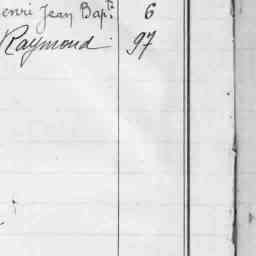 enri Jean Bapte. 6
Raymond 97